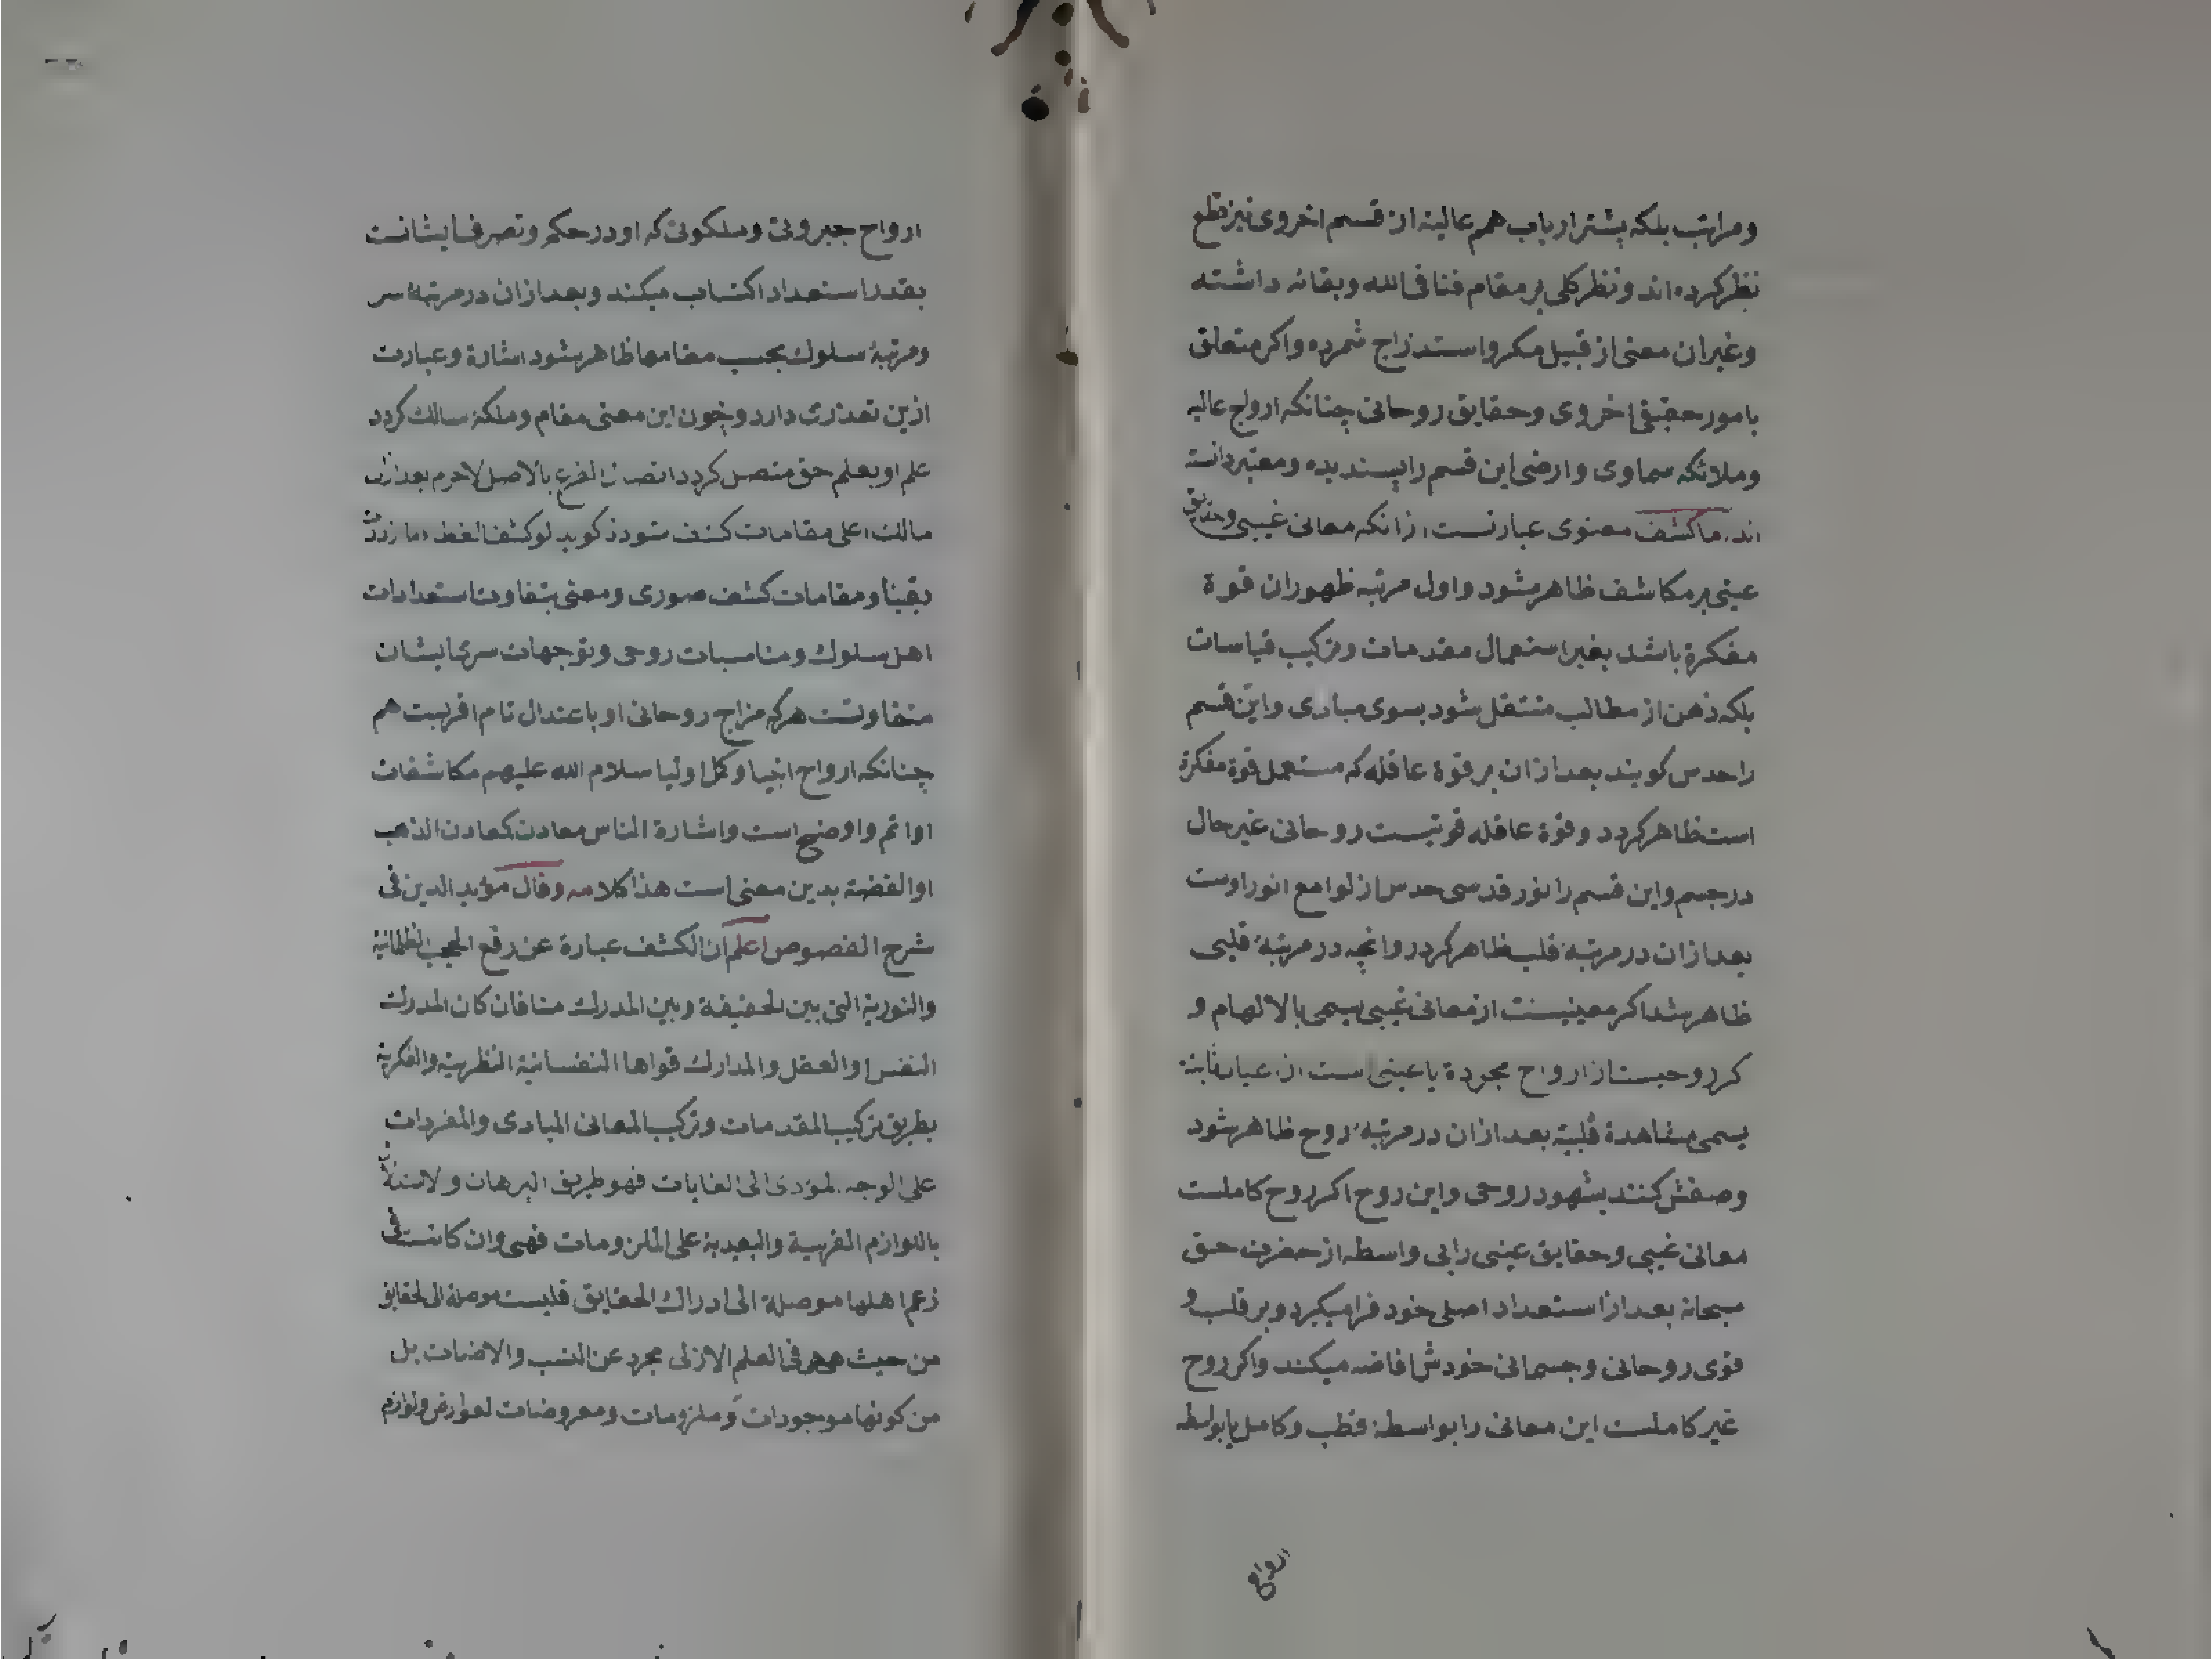 ومراتب بلکه بیشتر ارباب همم عالیه از قسم اخروی نیز قطع
نظر کرده اند ونظر کلی بر مقام فنا فی الله وبقائه داشته
وغیر ان معنی از قبیل مکر واستدراج شمرده واکر متعلق
بامور حقیقی اخروی وحقایق روحانی چنانکه ارواح عالیه
وملائکه سماوی وارضی این قسم را پسندیده ومعتبر دانسته
اند اما کشف معنوی عبارتست از انکه معانی غیبی وحقایق
عینی بر مکاشف ظاهر شود واول مرتبه ظهور ان قوة
مفکرة باشد بغیر استعمال مقدمات وترکیب قیاسات
بلکه ذهن از مطالب منتقل شود بسوی مبادی واین قسم
را حدس کویند بعد ازان بر قوة عاقله که مستعمل قوة مفکرة
است ظاهر کردد وقوة عاقله قوتیست روحانی غیر حال
در جسم واین قسم را نور قدسی حدس از لوامع انور اوست
بعد ازان در مرتبهٔ قلب ظاهر کردد وانچه در مرتبهٔ قلبی
ظاهر شد اکر معنیست از معانی غیبی یسمی بالالهام و
کر روحیست از ارواح مجردة یا عینی است از اعیان ثابته
یسمی مشاهدة قلبیة بعد ازان در مرتبهٔ روح ظاهر شود
وصفش کنند بشهود روحی واین روح اکر روح کاملست
معانی غیبی وحقایق عینی را بی واسطه از حضرت حق
سبحانه بعد از استعداد اصلی خود فرا میکیرد وبر قلب و
قوی روحانی وجسمانی خودش افاضه میکند واکر روح
غیر کاملست این معانی را بواسطهٔ قطب وکامل یا بواسطه
ارواح
ارواح جبروتی وملکوتی که او در حکم وتصرف ایشانست
بقدر استعداد اکتساب میکند وبعد ازان در مرتبهٔ سر
ومرتبهٔ سلوک بحسب مقامها ظاهر شود اشارة وعبارت
ازین تعذری دارد وچون این معنی مقام وملکهٔ سالک کردد
علم او بعلم حق متصل کردد اتصال الفرع بالاصل لاجرم بعد ازان
مالک اعلی مقامات کشف شود کوید لو کشف الغطا ما ازددت
یقینا ومقامات کشف صوری ومعنی بتفاوت استعدادات
اهل سلوک ومناسبات روحی وتوجهات سری ایشان
متفاوتست هر که مزاج روحانی او باعتدال تام اقربست هم
چنانکه ارواح انبیا وکل اولیا سلام الله علیهم مکاشفات
او اتم واوضح است واشارة الناس معادن کمعادن الذهب
او الفضة بدین معنی است هذا کلامه وقال مؤید الدین فی
شرح الفصوص اعلم ان الکشف عبارة عن رفع الحجب الظلمانیة
والنوریة التی بین الحقیقة وبین المدرك منا فان کان المدرك
النفس او العقل والمدارك قواها النفسانیة النظریة والفکریة
بطریق ترکیب المقدمات وترکیب المعانی المبادی والمفردات
علی الوجه المؤدی الی الغایات فهو طریق البرهان والاستدلال
باللوازم القریبة والبعیدة علی الملزومات فهی وان کانت فی
زعم اهلها موصلة الی ادراك الحقایق فلیست موصلة الی الحقایق
من حیث هی هی فی العلم الازلی مجرد عن النسب والاضافات بل
من کونها موجودات وملزومات ومعروضات لعوارض ولوازم